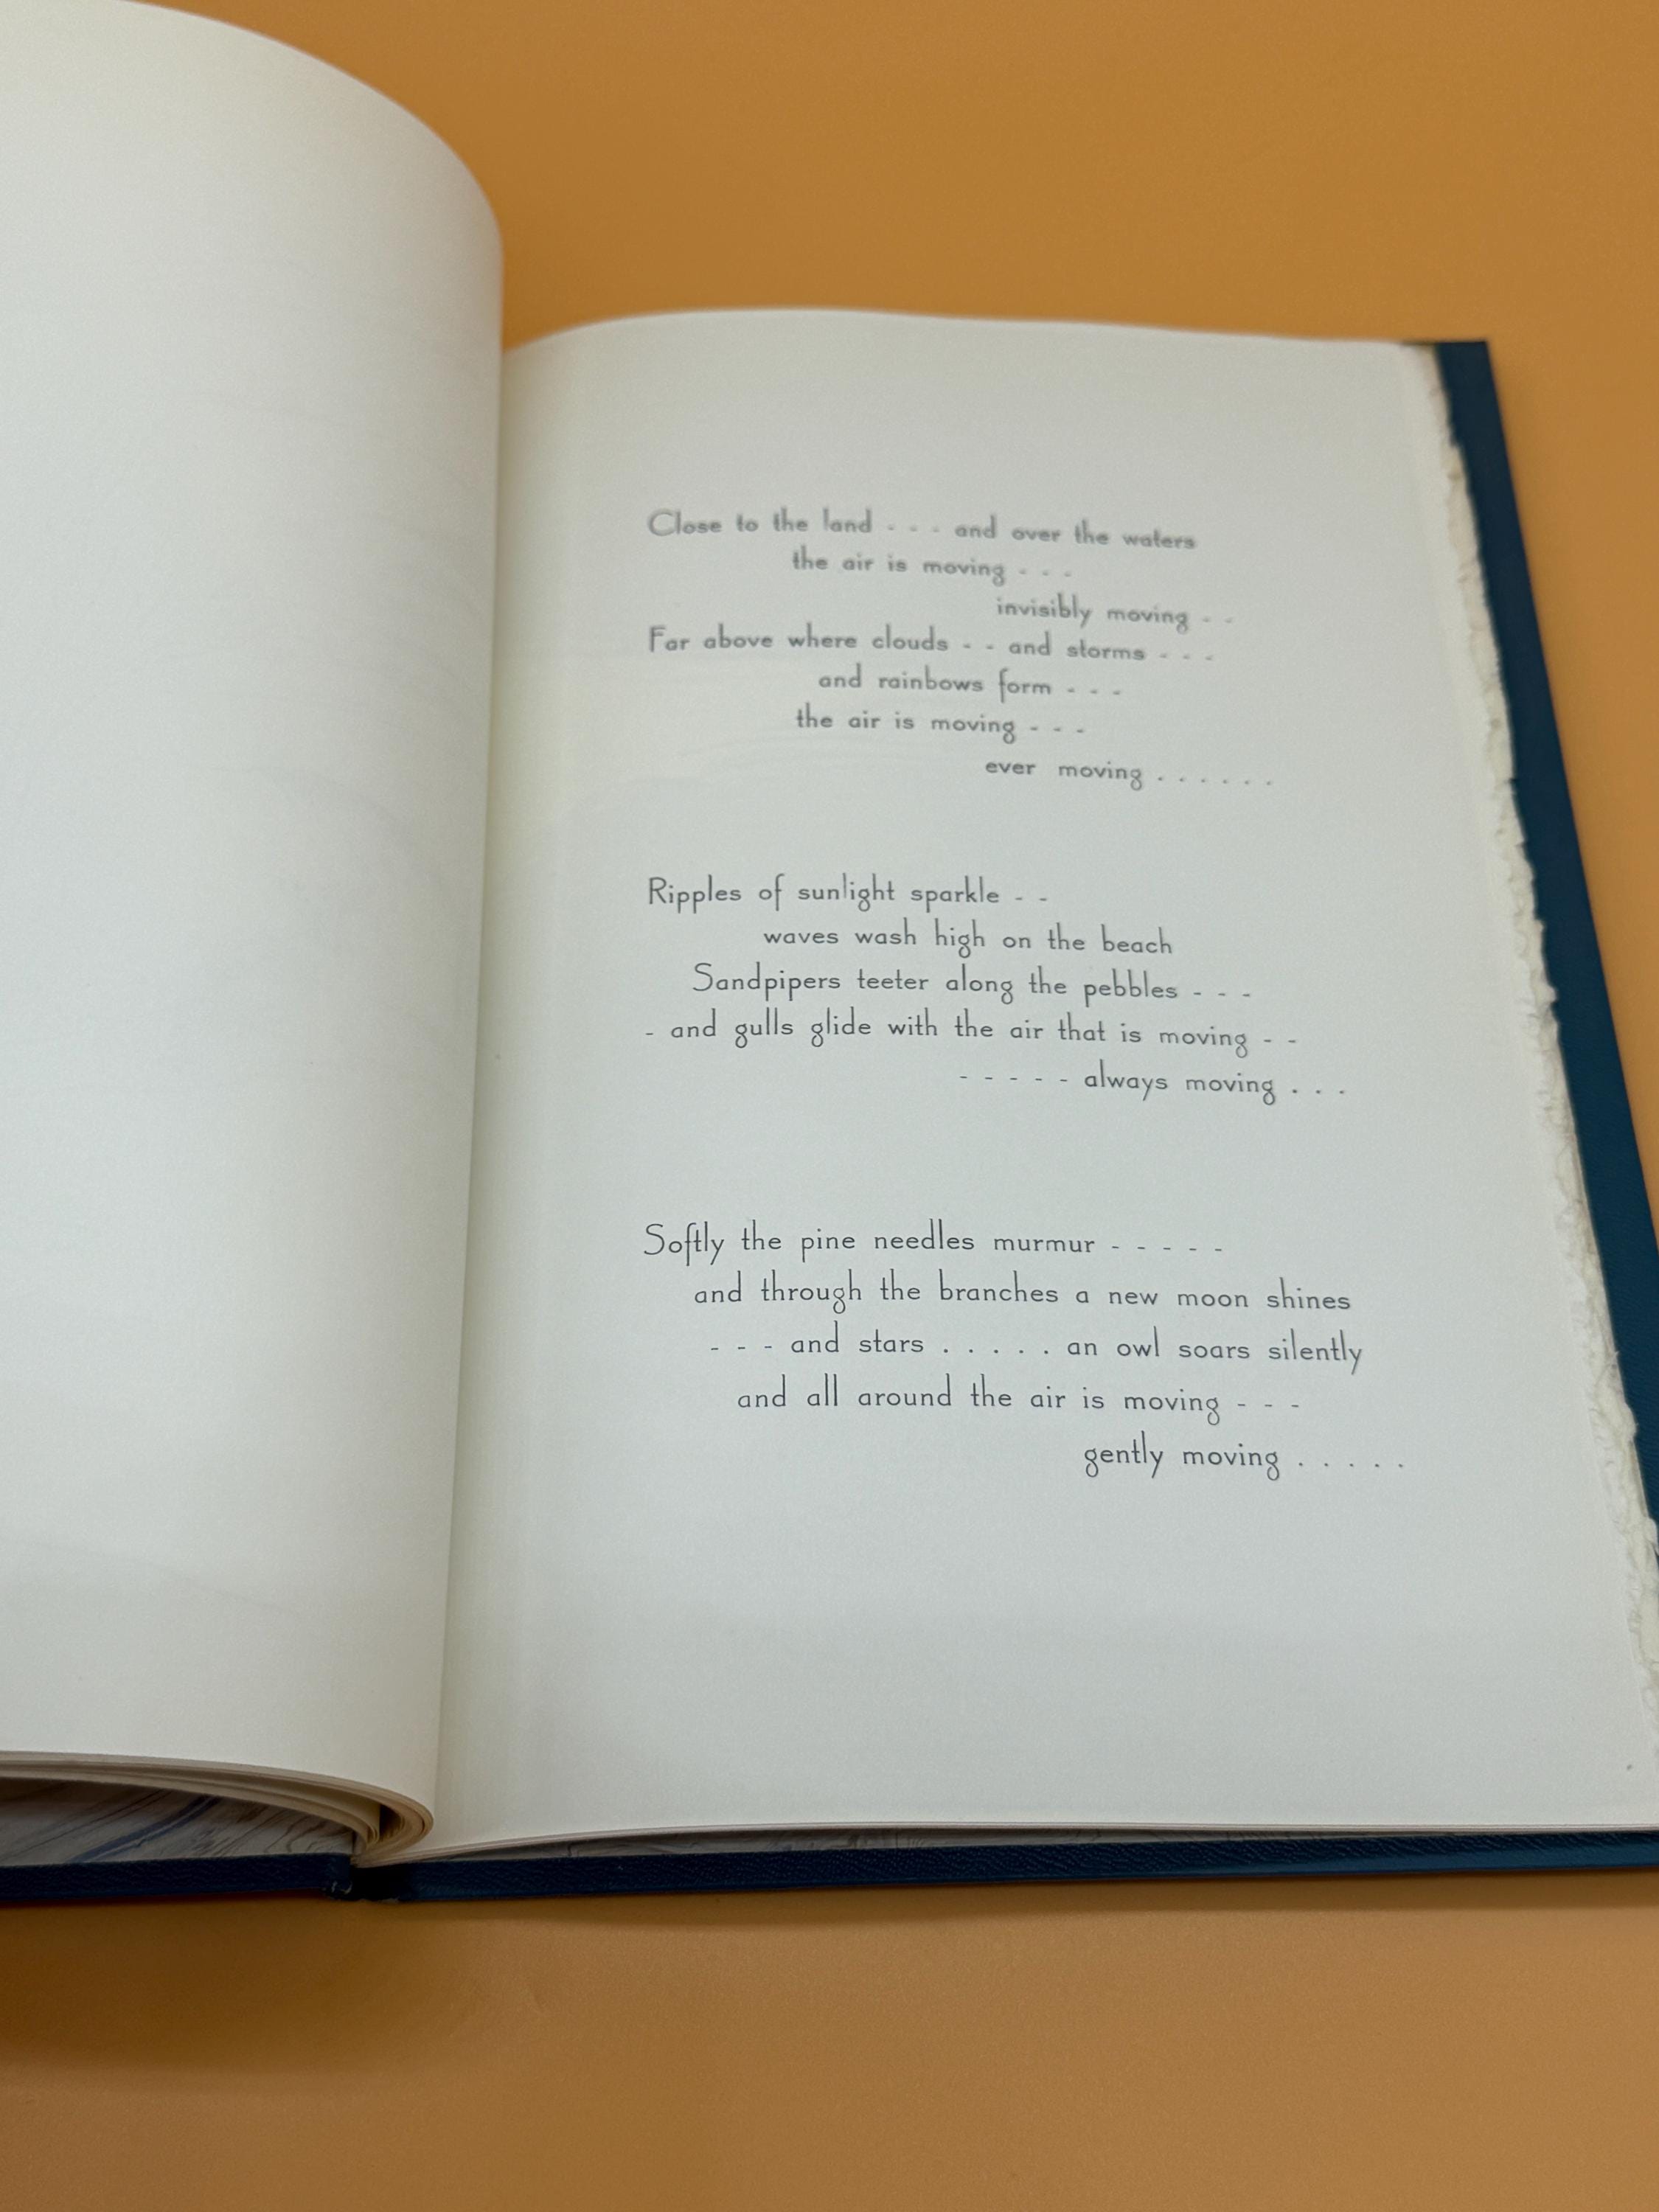 Close to the land - - - and over the waters
the air is moving - - -
invisibly moving - -
Far above where clouds - - and storms - - -
and rainbows form - - -
the air is moving - - -
ever moving . . . . . .
Ripples of sunlight sparkle - -
waves wash high on the beach
Sandpipers teeter along the pebbles - - -
- and gulls glide with the air that is moving - -
- - - - - always moving . . .
Softly the pine needles murmur - - - - -
and through the branches a new moon shines
- - - and stars . . . . . an owl soars silently
and all around the air is moving - - -
gently moving . . . . .